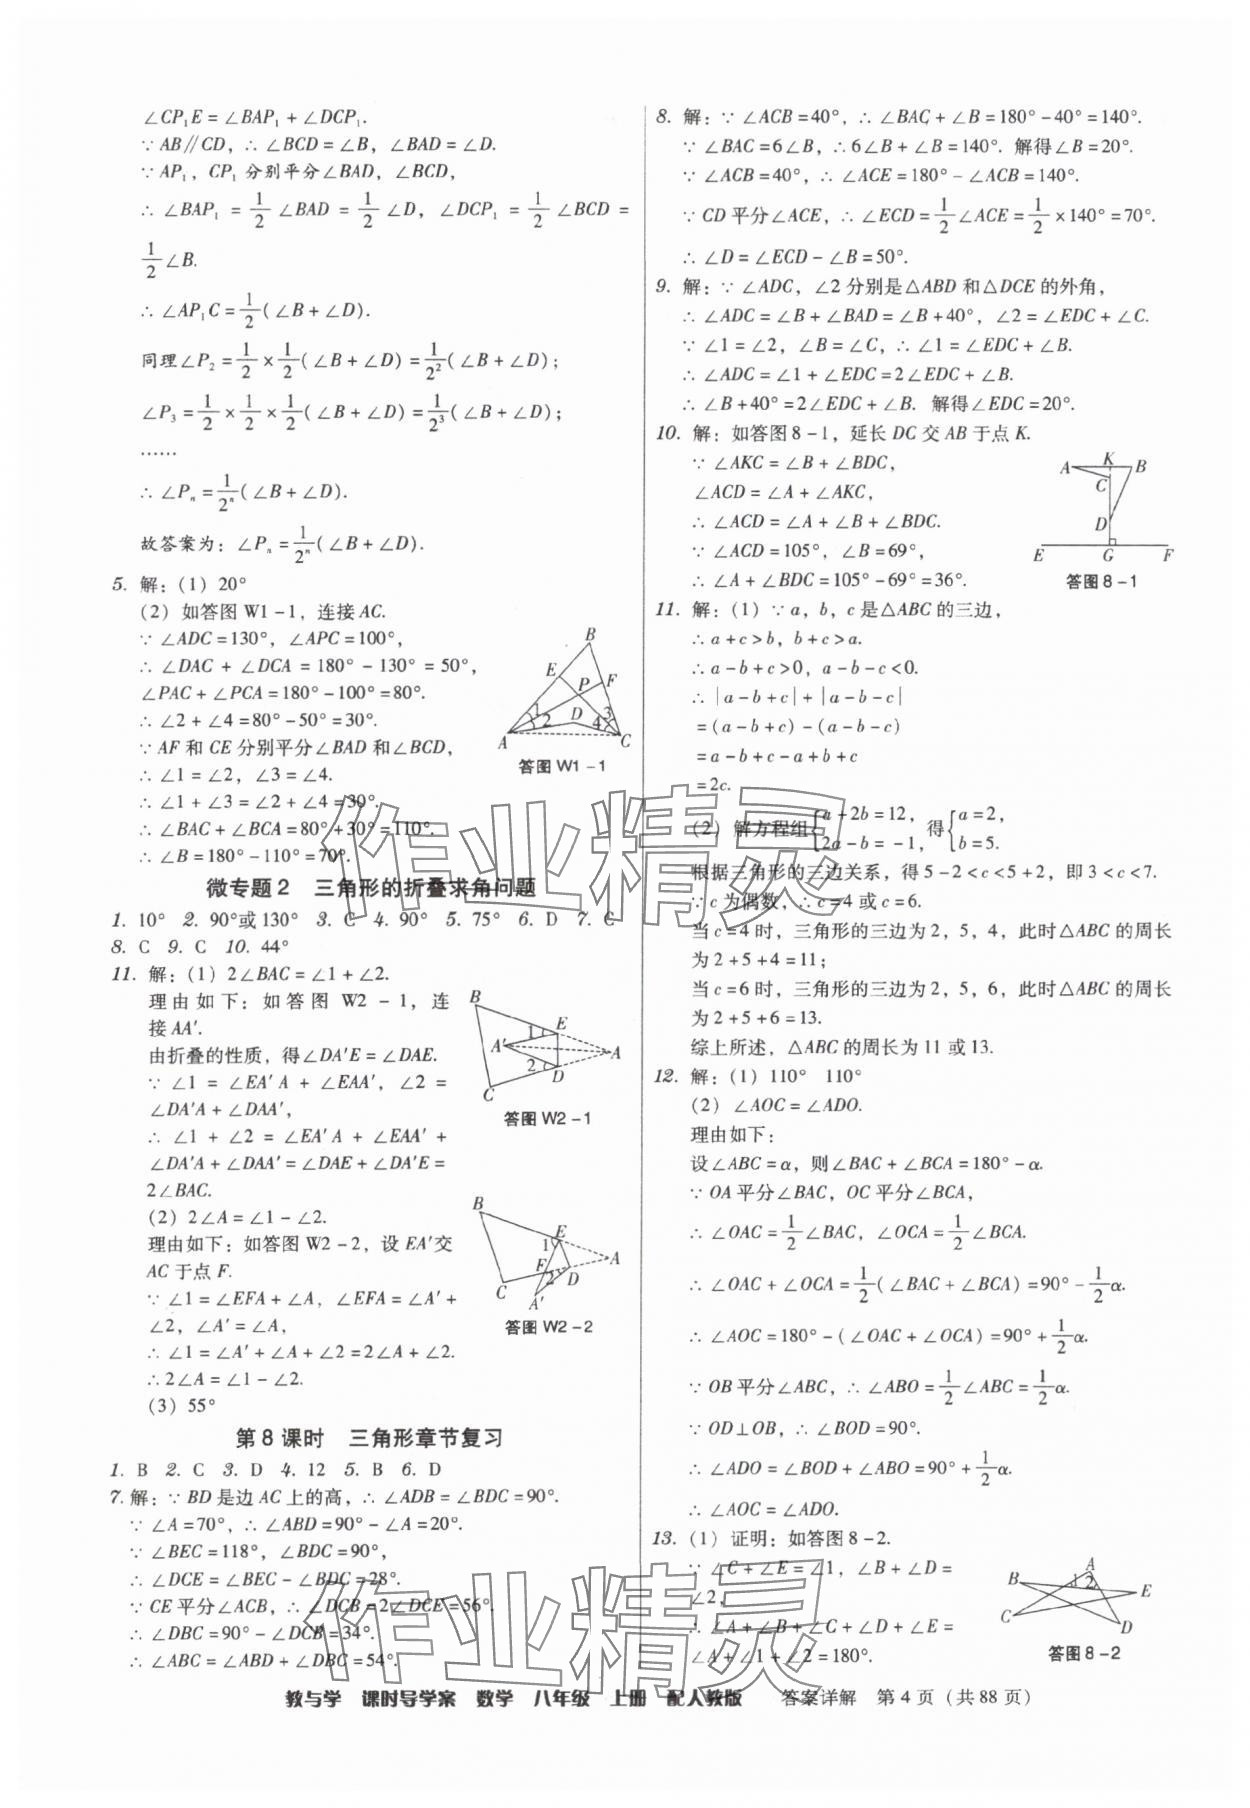 ∠CP₁E=∠BAP₁+∠DCP₁.
∵AB∥CD，∴∠BCD=∠B，∠BAD=∠D.
∵AP₁，CP₁分别平分∠BAD，∠BCD，
∴∠BAP₁=1/2∠BAD=1/2∠D，∠DCP₁=1/2∠BCD=
1/2∠B.
∴∠AP₁C=1/2(∠B+∠D).
同理∠P₂=1/2×1/2(∠B+∠D)=1/2²(∠B+∠D)；
∠P₃=1/2×1/2×1/2(∠B+∠D)=1/2³(∠B+∠D)；
……
∴∠Pₙ=1/2ⁿ(∠B+∠D).
故答案为：∠Pₙ=1/2ⁿ(∠B+∠D).
5. 解：(1) 20°
(2) 如答图W1-1，连接AC.
∵∠ADC=130°，∠APC=100°，
∴∠DAC+∠DCA=180°-130°=50°，
∠PAC+∠PCA=180°-100°=80°.
∴∠2+∠4=80°-50°=30°.
∵AF和CE分别平分∠BAD和∠BCD，
∴∠1=∠2，∠3=∠4.
∴∠1+∠3=∠2+∠4=30°.
∴∠BAC+∠BCA=80°+30°=110°.
∴∠B=180°-110°=70°.
B
E
P
F
1
2
D
3
4
A
C
答图W1-1
微专题2 三角形的折叠求角问题
1. 10° 2. 90°或130° 3. C 4. 90° 5. 75° 6. D 7. C
8. C 9. C 10. 44°
11. 解：(1) 2∠BAC=∠1+∠2.
理由如下：如答图W2-1，连
接AA′.
由折叠的性质，得∠DA′E=∠DAE.
∵∠1=∠EA′A+∠EAA′，∠2=
∠DA′A+∠DAA′，
∴∠1+∠2=∠EA′A+∠EAA′+
∠DA′A+∠DAA′=∠DAE+∠DA′E=
2∠BAC.
(2) 2∠A=∠1-∠2.
理由如下：如答图W2-2，设EA′交
AC于点F.
∵∠1=∠EFA+∠A，∠EFA=∠A′+
∠2，∠A′=∠A，
∴∠1=∠A′+∠A+∠2=2∠A+∠2.
∴2∠A=∠1-∠2.
(3) 55°
B
E
1
A′
A
2
D
C
答图W2-1
B
E
1
A
F
2
D
C
A′
答图W2-2
第8课时 三角形章节复习
1. B 2. C 3. D 4. 12 5. B 6. D
7. 解：∵BD是边AC上的高，∴∠ADB=∠BDC=90°.
∵∠A=70°，∴∠ABD=90°-∠A=20°.
∵∠BEC=118°，∠BDC=90°，
∴∠DCE=∠BEC-∠BDC=28°.
∵CE平分∠ACB，∴∠DCB=2∠DCE=56°.
∴∠DBC=90°-∠DCB=34°.
∴∠ABC=∠ABD+∠DBC=54°.
8. 解：∵∠ACB=40°，∴∠BAC+∠B=180°-40°=140°.
∵∠BAC=6∠B，∴6∠B+∠B=140°. 解得∠B=20°.
∵∠ACB=40°，∴∠ACE=180°-∠ACB=140°.
∵CD平分∠ACE，∴∠ECD=1/2∠ACE=1/2×140°=70°.
∴∠D=∠ECD-∠B=50°.
9. 解：∵∠ADC，∠2分别是△ABD和△DCE的外角，
∴∠ADC=∠B+∠BAD=∠B+40°，∠2=∠EDC+∠C.
∵∠1=∠2，∠B=∠C，∴∠1=∠EDC+∠B.
∴∠ADC=∠1+∠EDC=2∠EDC+∠B.
∴∠B+40°=2∠EDC+∠B. 解得∠EDC=20°.
10. 解：如答图8-1，延长DC交AB于点K.
∵∠AKC=∠B+∠BDC，
∠ACD=∠A+∠AKC，
∴∠ACD=∠A+∠B+∠BDC.
∵∠ACD=105°，∠B=69°，
∴∠A+∠BDC=105°-69°=36°.
A
K
B
C
D
E
G
F
答图8-1
11. 解：(1) ∵a，b，c是△ABC的三边，
∴a+c>b，b+c>a.
∴a-b+c>0，a-b-c<0.
∴|a-b+c|+|a-b-c|
=(a-b+c)-(a-b-c)
=a-b+c-a+b+c
=2c.
(2) 解方程组{a+2b=12，2a-b=-1，得{a=2，b=5.
根据三角形的三边关系，得5-2<c<5+2，即3<c<7.
∵c为偶数，∴c=4或c=6.
当c=4时，三角形的三边为2，5，4，此时△ABC的周长
为2+5+4=11；
当c=6时，三角形的三边为2，5，6，此时△ABC的周长
为2+5+6=13.
综上所述，△ABC的周长为11或13.
12. 解：(1) 110° 110°
(2) ∠AOC=∠ADO.
理由如下：
设∠ABC=α，则∠BAC+∠BCA=180°-α.
∵OA平分∠BAC，OC平分∠BCA，
∴∠OAC=1/2∠BAC，∠OCA=1/2∠BCA.
∴∠OAC+∠OCA=1/2(∠BAC+∠BCA)=90°-1/2α.
∴∠AOC=180°-(∠OAC+∠OCA)=90°+1/2α.
∵OB平分∠ABC，∴∠ABO=1/2∠ABC=1/2α.
∵OD⊥OB，∴∠BOD=90°.
∴∠ADO=∠BOD+∠ABO=90°+1/2α.
∴∠AOC=∠ADO.
13. (1) 证明：如答图8-2.
∵∠C+∠E=∠1，∠B+∠D=
∠2，
∴∠A+∠B+∠C+∠D+∠E=
∠A+∠1+∠2=180°.
A
B
1
2
E
C
D
答图8-2
作业精灵
作业精灵
教与学 课时导学案 数学 八年级 上册 配人教版 答案详解 第4页（共88页）